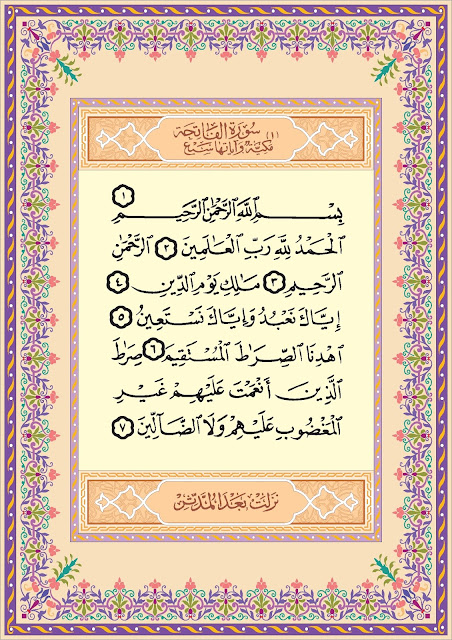 سُورَةُ الفَاتِحَة
مَكِّيَّة وَآيَاتُهَا سَبْع
بِسْمِ ٱللَّهِ ٱلرَّحْمَٰنِ ٱلرَّحِيمِ ١
ٱلْحَمْدُ لِلَّهِ رَبِّ ٱلْعَٰلَمِينَ ٢ ٱلرَّحْمَٰنِ
ٱلرَّحِيمِ ٣ مَٰلِكِ يَوْمِ ٱلدِّينِ ٤
إِيَّاكَ نَعْبُدُ وَإِيَّاكَ نَسْتَعِينُ ٥
ٱهْدِنَا ٱلصِّرَٰطَ ٱلْمُسْتَقِيمَ ٦ صِرَٰطَ
ٱلَّذِينَ أَنْعَمْتَ عَلَيْهِمْ غَيْرِ
ٱلْمَغْضُوبِ عَلَيْهِمْ وَلَا ٱلضَّآلِّينَ ٧
نَزَلَتْ بَعْدَ المُدَّثِّر